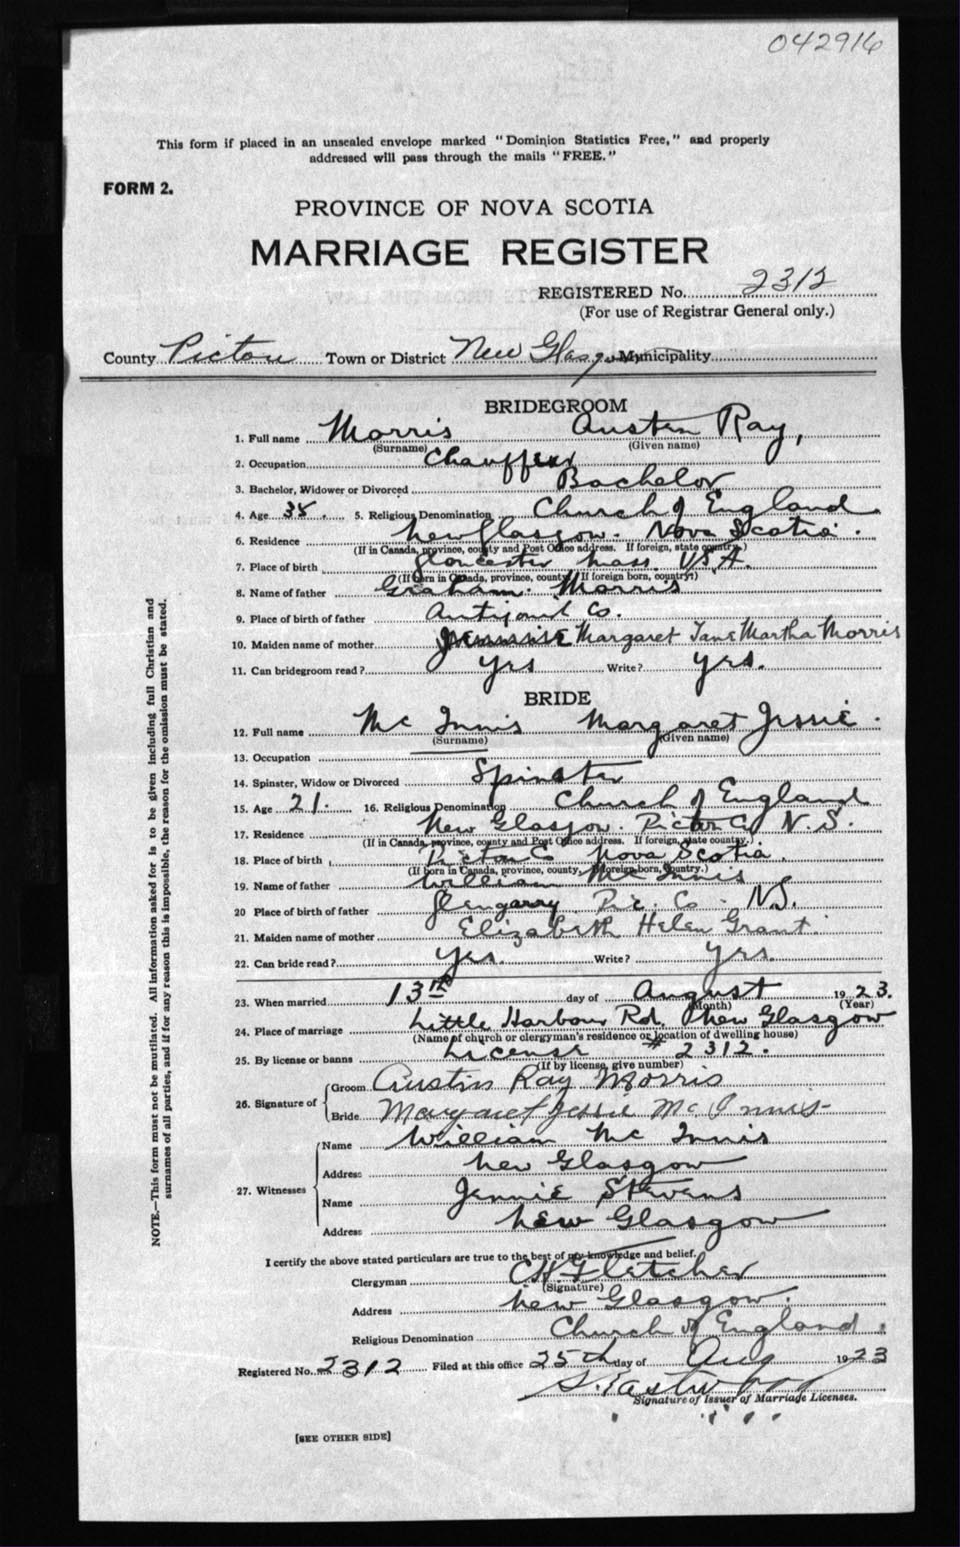 042916
This form if placed in an unsealed envelope marked "Dominion Statistics Free," and properly
addressed will pass through the mails "FREE."
FORM 2.
PROVINCE OF NOVA SCOTIA
MARRIAGE REGISTER
REGISTERED No. 2312
(For use of Registrar General only.)
County Pictou Town or District New Glasgow Municipality
BRIDEGROOM
1. Full name Morris Austen Ray,
(Surname) (Given name)
2. Occupation Chauffeur
3. Bachelor, Widower or Divorced Bachelor
4. Age 38. 5. Religious Denomination Church of England
6. Residence New Glasgow. Nova Scotia.
(If in Canada, province, county and Post Office address. If foreign, state country.)
7. Place of birth Gloucester Mass. USA.
(If born in Canada, province, county. If foreign born, country.)
8. Name of father Graham. Morris
9. Place of birth of father Co.
10. Maiden name of mother Margaret Jane Martha Morris
11. Can bridegroom read? Yes Write? Yes.
BRIDE
12. Full name Mc Innis Margaret Jessie.
(Surname) (Given name)
13. Occupation
14. Spinster, Widow or Divorced Spinster
15. Age 21. 16. Religious Denomination Church of England
17. Residence New Glasgow. Pictou Co N.S.
(If in Canada, province, county and Post Office address. If foreign, state country.)
18. Place of birth Pictou Co Nova Scotia.
(If born in Canada, province, county. If foreign born, country.)
19. Name of father William Mc Innis
20 Place of birth of father Glengarry Pic. Co. N.S.
21. Maiden name of mother Elizabeth Helen Grant.
22. Can bride read? Yes. Write? Yes.
23. When married 13th day of August 1923.
(Month) (Year)
24. Place of marriage Little Harbour Rd. New Glasgow
(Name of church or clergyman's residence or location of dwelling house)
25. By license or banns License # 2312.
(If by license, give number)
26. Signature of
Groom Austin Ray Morris
Bride Margaret Jessie Mc Innis
27. Witnesses
Name William Mc Innis
Address New Glasgow
Name Jennie Stevens
Address New Glasgow
I certify the above stated particulars are true to the best of my knowledge and belief.
Clergyman CH Fletcher
(Signature)
Address New Glasgow.
Religious Denomination Church of England.
Registered No. 2312 Filed at this office 25th day of Aug 1923
Signature of Issuer of Marriage Licenses.
[SEE OTHER SIDE]
NOTE.—This form must not be mutilated. All information asked for is to be given including full Christian and
surnames of all parties, and if for any reason this is impossible, the reason for the omission must be stated.